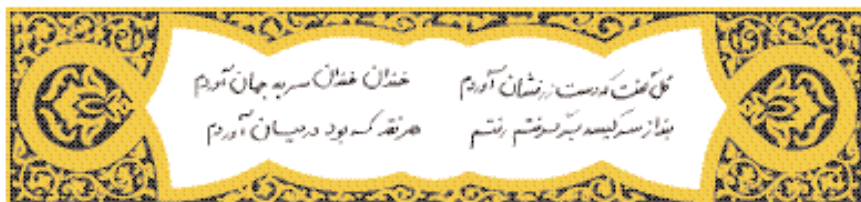 گل گفت که دست زرفشان آوردم خندان خندان سر به جهان آوردم
بند از سر کیسه برگرفتم رفتم هر نقد که بود در میان آوردم